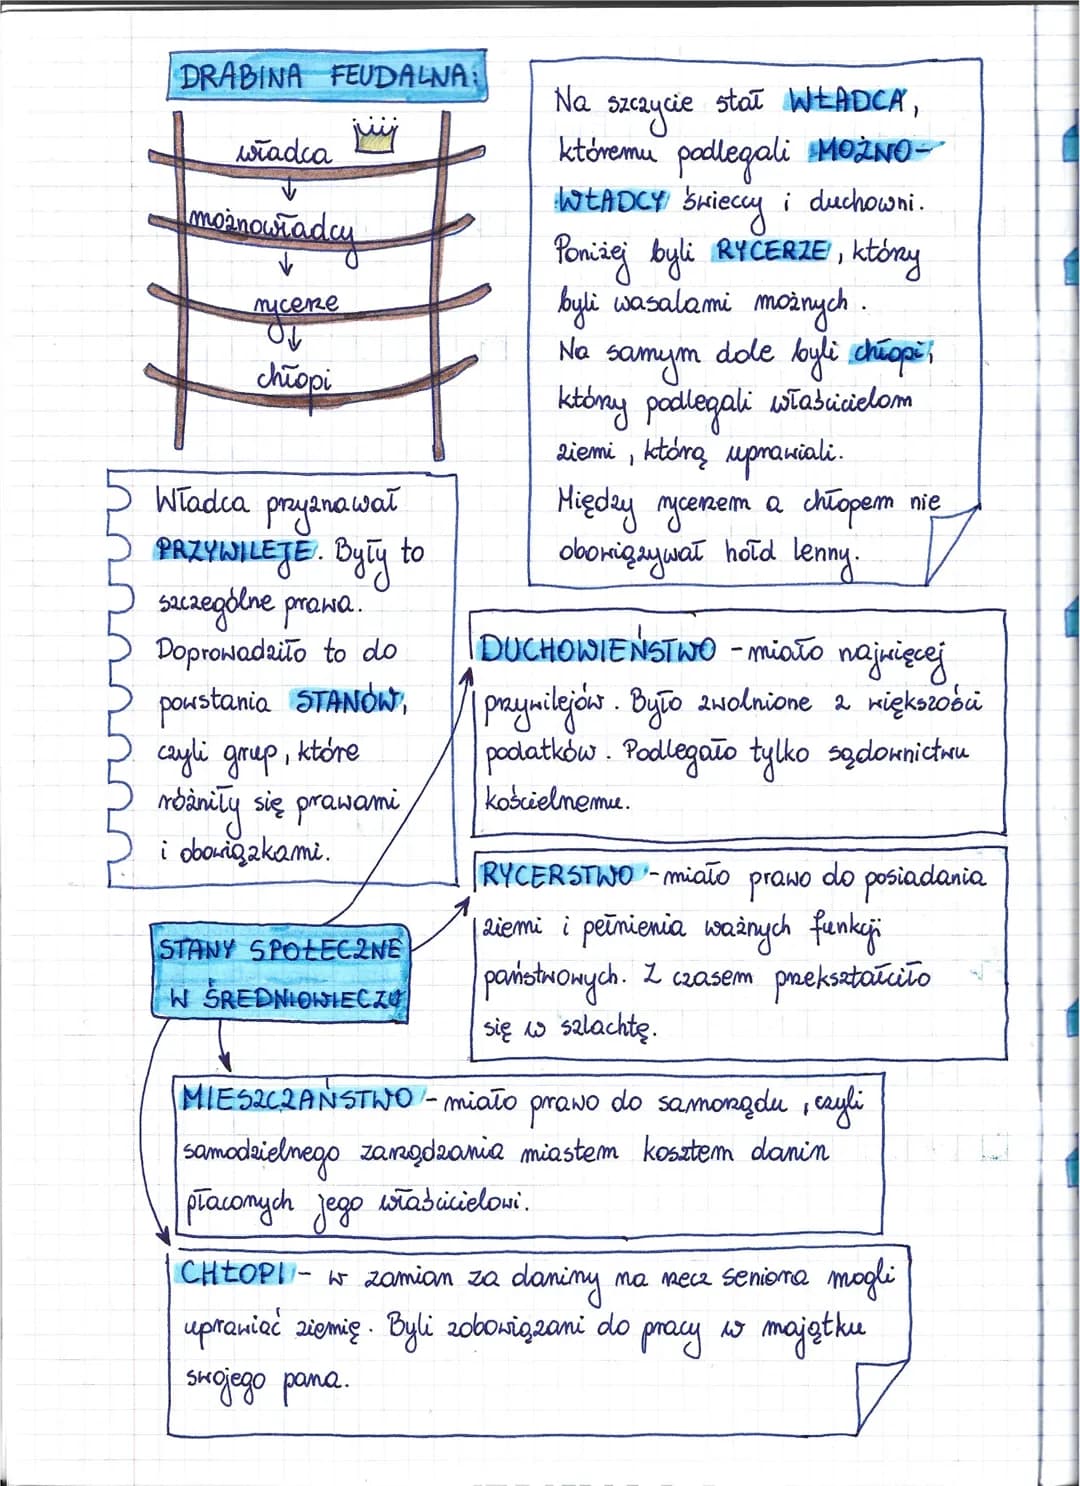 DRABINA FEUDALNA:
władca
możnowładcy
rycerze
chłopi
Na szczycie stał WŁADCA,
któremu podlegali MOŻNO-
WŁADCY świeccy i duchowni.
Poniżej byli RYCERZE, którzy
byli wasalami możnych.
Na samym dole byli chłopi,
którzy podlegali właścicielom
ziemi, którą uprawiali.
Między rycerzem a chłopem nie
obowiązywał hołd lenny.
Władca przyznawał
PRZYWILEJE. Były to
szczególne prawa.
Doprowadziło to do
powstania STANÓW,
czyli grup, które
różniły się prawami
i obowiązkami.
STANY SPOŁECZNE
W ŚREDNIOWIECZU
DUCHOWIEŃSTWO - miało najwięcej
przywilejów. Było zwolnione z większości
podatków. Podlegało tylko sądownictwu
kościelnemu.
RYCERSTWO - miało prawo do posiadania
ziemi i pełnienia ważnych funkcji
państwowych. Z czasem przekształciło
się w szlachtę.
MIESZCZAŃSTWO - miało prawo do samorządu, czyli
samodzielnego zarządzania miastem kosztem danin
płaconych jego właścicielowi.
CHŁOPI - w zamian za daniny na rzecz seniora mogli
uprawiać ziemię. Byli zobowiązani do pracy w majątku
swojego pana.